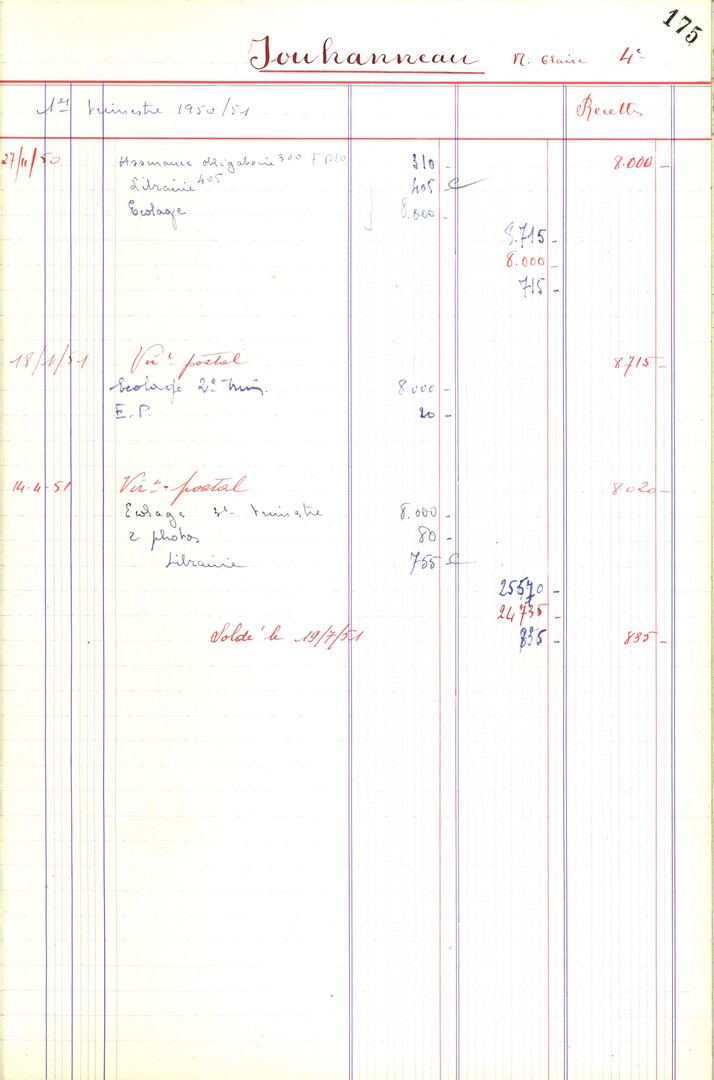 175
Jouhanneau M. Claire 4e
1er trimestre 1950/51 Recettes
27/11/50 Assurance obligatoire 300 EP10 310 - 8.000 -
Librairie 405 405 -
Ecolage 8.000 -
8.715 -
8.000 -
715 -
18/1/51 Virt postal 8715 -
Ecolage 2e trim. 8000 -
E.P. 20 -
14-4-51 Virt postal 8020 -
Ecolage 3e trimestre 8.000 -
2 photos 80 -
Librairie 755 -
25570 -
24735 -
Soldé le 19/7/51 835 - 835 -